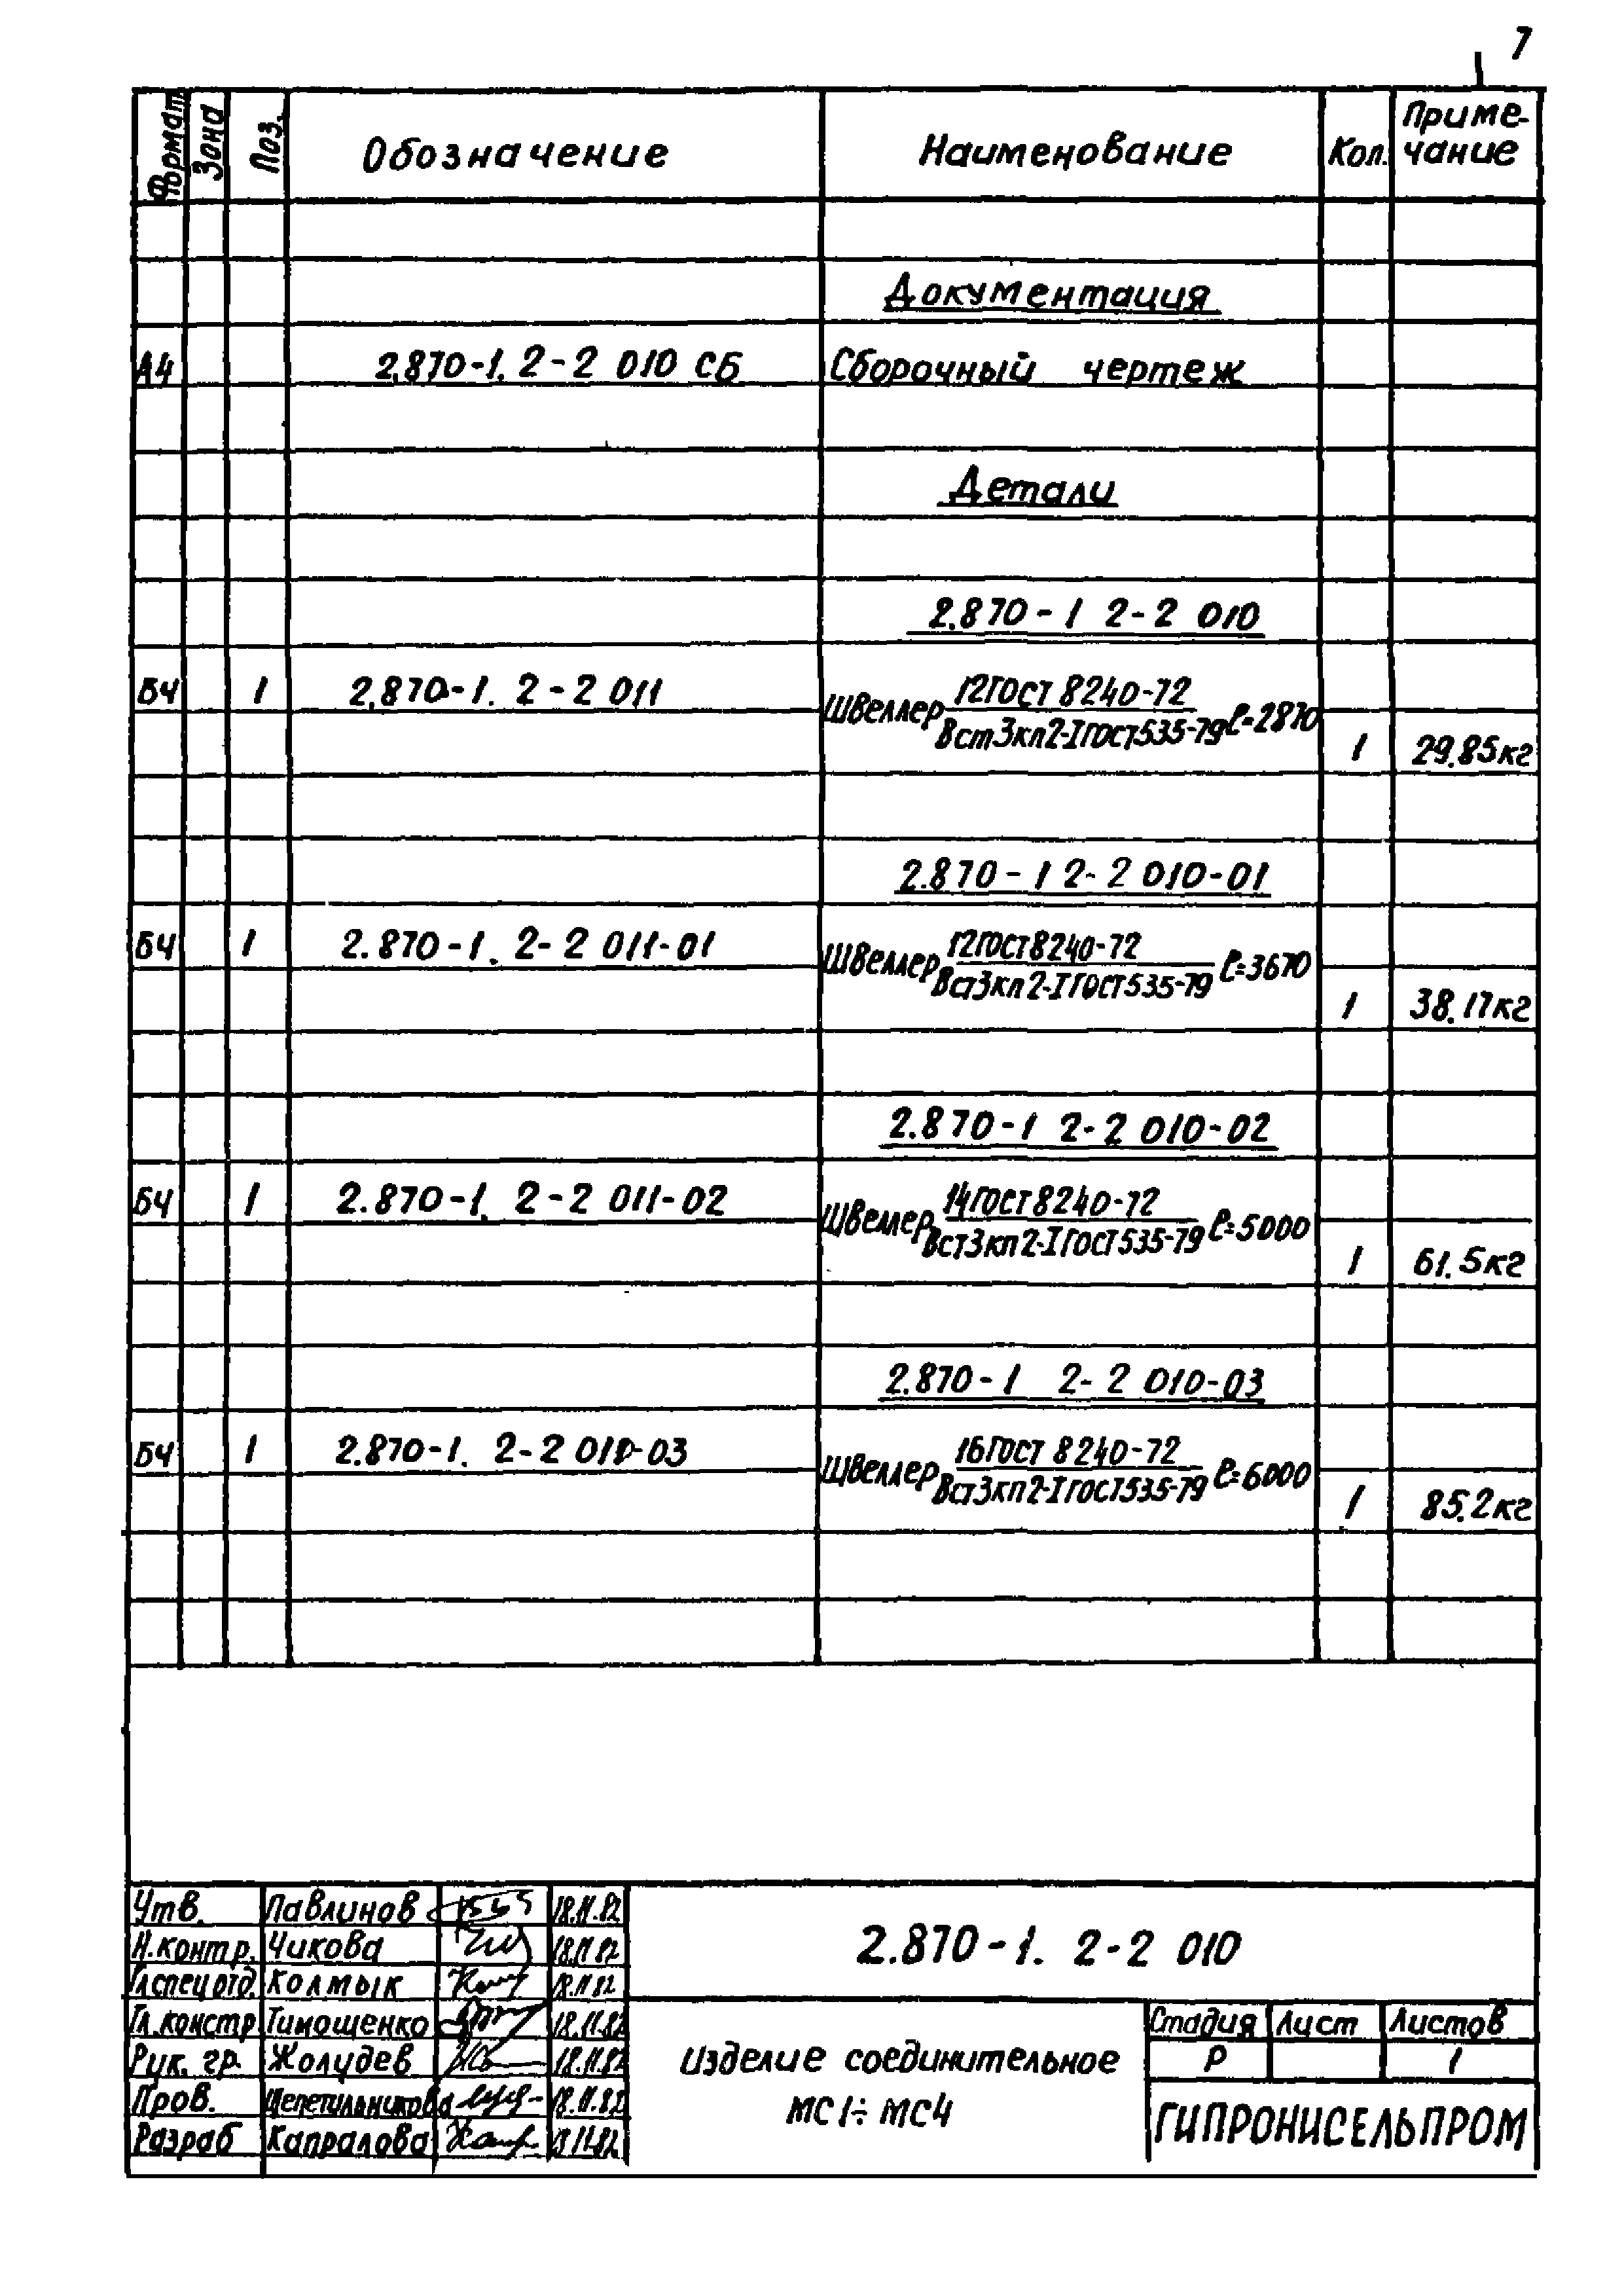 7
Формат Зона Поз. Обозначение Наименование Кол. Приме-
чание
Документация
А4 2.870-1. 2-2 010 СБ Сборочный чертеж
Детали
2.870-1 2-2 010
БЧ 1 2.870-1. 2-2 011 Швеллер 12 ГОСТ 8240-72
Вст3кп2-I ГОСТ 535-79 ℓ=2870
1 29.85кг
2.870-1 2-2 010-01
БЧ 1 2.870-1. 2-2 011-01 Швеллер 12 ГОСТ 8240-72
Вст3кп2-I ГОСТ 535-79 ℓ=3670
1 38.17кг
2.870-1 2-2 010-02
БЧ 1 2.870-1. 2-2 011-02 Швеллер 14 ГОСТ 8240-72
Вст3кп2-I ГОСТ 535-79 ℓ=5000
1 61.5кг
2.870-1 2-2 010-03
БЧ 1 2.870-1. 2-2 011-03 Швеллер 16 ГОСТ 8240-72
Вст3кп2-I ГОСТ 535-79 ℓ=6000
1 85.2кг
Утв. Павлинов 18.11.82
Н.контр. Чикова 18.11.82
Гл.спец.отд. Колмык 18.11.82
Гл.констр Тимошенко 18.11.82
Рук. гр. Жолудев 18.11.82
Пров. Щепетильникова 18.11.82
Разраб Капралова 18.11.82
2.870-1. 2-2 010
Изделие соединительное
МС1÷МС4
Стадия Лист Листов
Р 1
ГИПРОНИСЕЛЬПРОМ